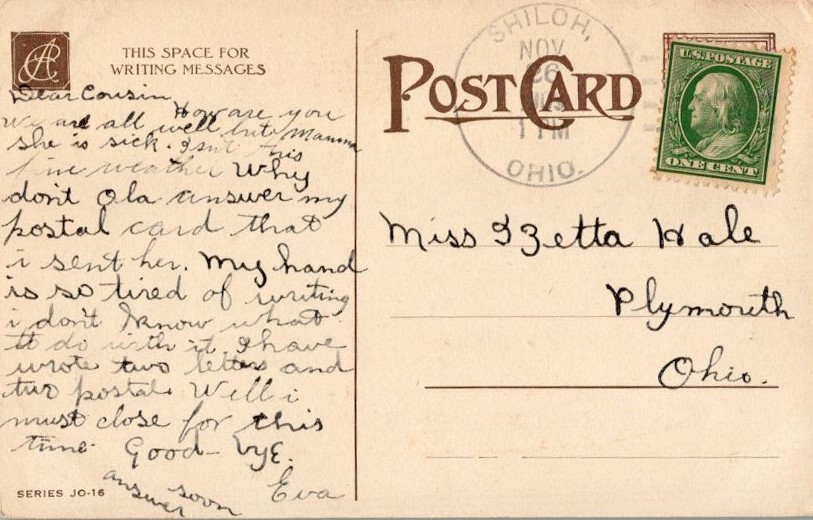 THIS SPACE FOR
WRITING MESSAGES
Dear Cousin
How are you
We are all well but Mamma
she is sick. Isnt this
fine weather Why
don't Ola answer my
postal card that
i sent her. My hand
is so tired of writing
i don't know what
to do with it I have
wrote two letters and
two postals Well i
must close for this
time Good-bye.
answer soon
Eva
SERIES JO-16
SHILOH,
NOV
26
1 PM
OHIO.
POST CARD
U.S. POSTAGE
ONE CENT
Miss Izetta Hale
Plymouth
Ohio.